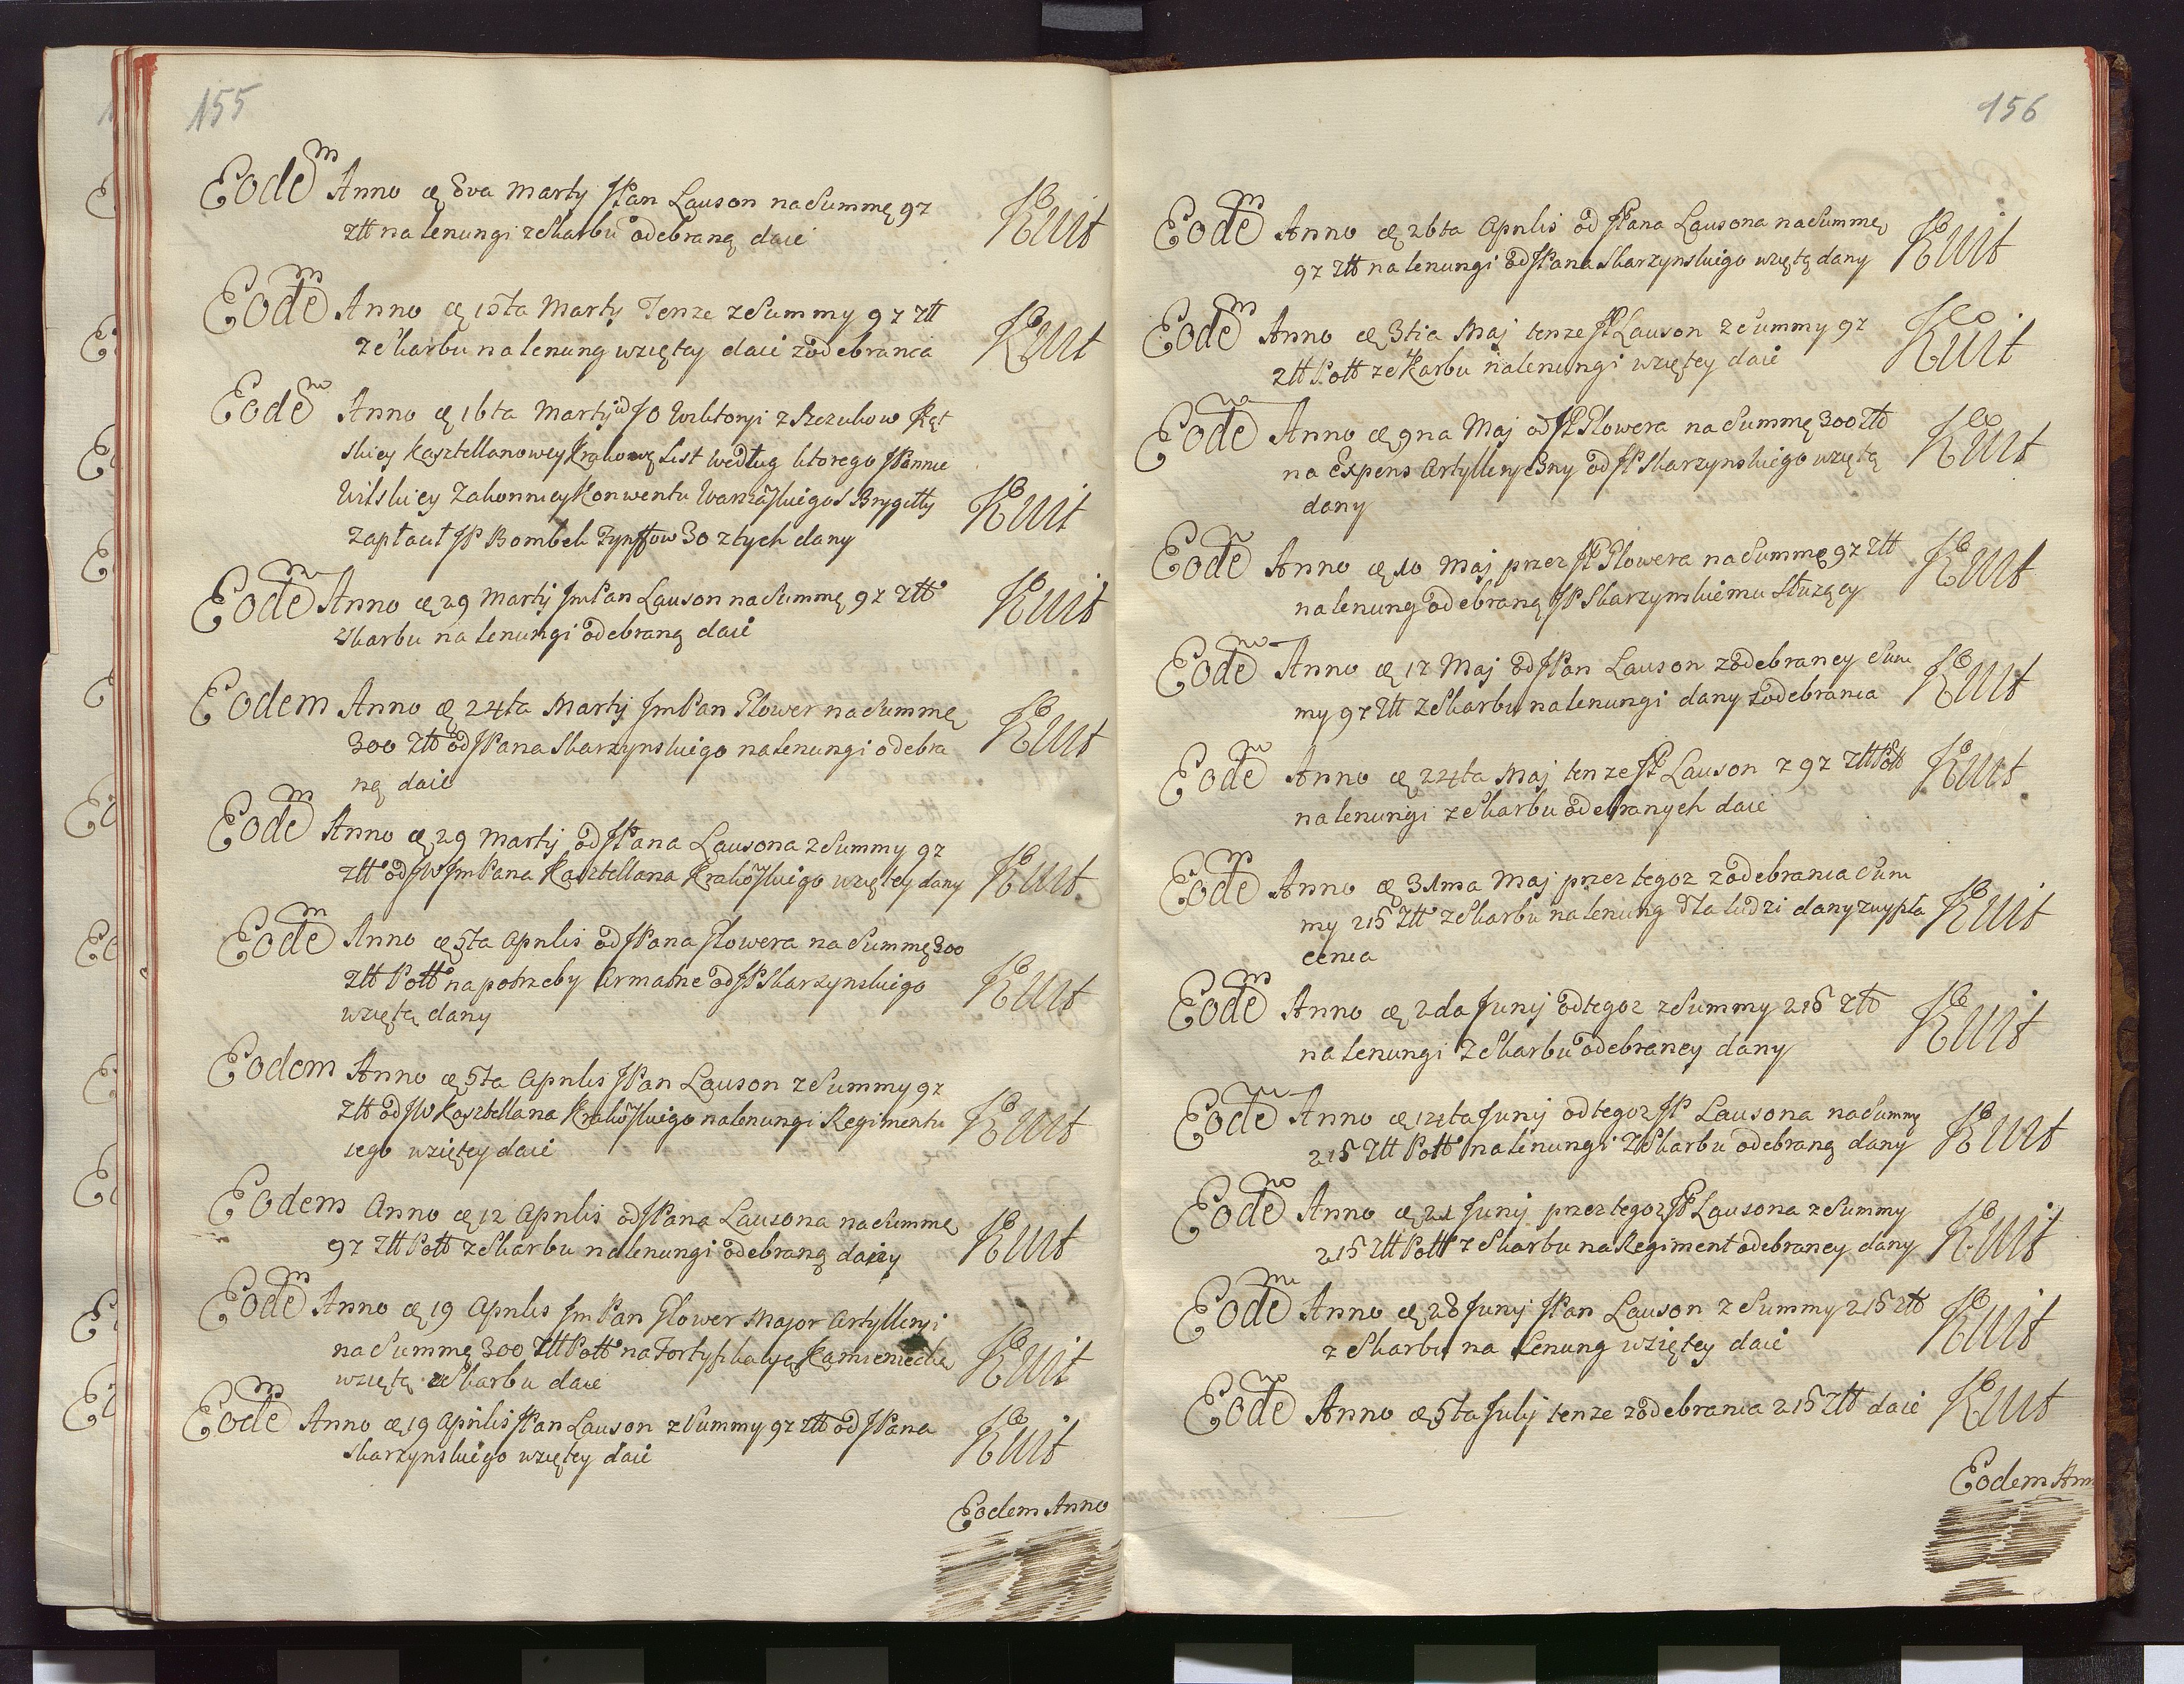 155
Eodem Anno æ 8va Martij JPan Lauson na Summę 97 Kwit
Złł na lenungi z Skarbu odebraną daie
Eodem Anno æ 15ta Martij Tenze z Summy 97 Złł Kwit
z Skarbu na lenung wziętey daie z odebrania
Eodem Anno æ 16ta Martij JO Wiktoryi z Szczukow Kąt
skiey Kasztellanowey Krakows List według ktorego JPannie
Wilskiey Zakonnicy Konwentu Warszawskiego S Brygitty Kwit
zapłacił JP Bombek Tynffow 30 złtych dany
Eodem Anno æ 29 Martij JmPan Lauson na Summę 97 Złł Kwit
z Skarbu na lenungi odebraną daie
Eodem Anno æ 24ta Martij JmPan Glower na Summę Kwit
300 Złł od JPana Skarzynskiego na lenungi odebra
ną daie
Eodem Anno æ 29 Martij od JPana Lausona z Summy 97
Złł od JW JmPana Kasztellana Krakowskiego wziętey dany Kwit
Eodem Anno æ 5ta Aprilis od JPana Glowera na Summę 300
Złł Poll na potrzeby Armatne od JP Skarzynskiego Kwit
wziętą dany
Eodem Anno æ 5ta Aprilis JPan Lauson z Summy 97
Złł od JW Kasztellana Krakowskiego na lenungi Regimentu Kwit
iego wziętey daie
Eodem Anno æ 12 Aprilis od JPana Lausona na Summę Kwit
97 Złł Poll z Skarbu na lenungi odebraną dany
Eodem Anno æ 19 Aprilis JmPan Glower Major Artylleryi
na Summę 300 Złł Poll na Fortyfikacyę Kamieniecką Kwit
wziętą z Skarbu daie
Eodem Anno æ 19 Aprilis JPan Lauson z Summy 97 Złł od JPana Kwit
Skarzynskiego wziętey daie
Eodem Anno
156
Eodem Anno æ 26ta Aprilis od JPana Lausona na Summę Kwit
97 Złł na lenungi od JPana Skarzynskiego wziętą dany
Eodem Anno æ 3tia Maj tenze JP Lauson z Summy 97 Kwit
Złł Poll ze Skarbu na lenungi wziętey daie
Eodem Anno æ 9na Maj od JP Glowera na Summę 300 Złł Kwit
na Expens Artylleryczny od JP Skarzynskiego wziętą
dany
Eodem Anno æ 10 Maj przez JP Glowera na Summę 97 Złł Kwit
na lenung odebraną JP Skarzynskiemu słuzący
Eodem Anno æ 17 Maj od JPan Lauson z odebraney Sum Kwit
my 97 Złł z Skarbu na lenungi dany z odebrania
Eodem Anno æ 24ta Maj tenze JP Lauson z 97 Złł Poll Kwit
na lenungi z Skarbu odebranych daie
Eodem Anno æ 31ma Maj przez tegoz z odebrania Sum
my 215 Złł z Skarbu na lenung dla ludzi dany z wypła Kwit
cenia
Eodem Anno æ 2da Junij od tegoz z Summy 215 Złł Kwit
na lenungi z Skarbu odebraney dany
Eodem Anno æ 14ta Junij od tegoz JP Lausona na Summę Kwit
215 Złł Poll na lenungi z Skarbu odebraną dany
Eodem Anno æ 21 Junij przez tegoz JP Lausona z Summy Kwit
215 Złł Poll z Skarbu na Regiment odebraney dany
Eodem Anno æ 28 Junij JPan Lauson z Summy 215 Złł Kwit
z Skarbu na lenung wziętey daie
Eodem Anno æ 5ta Julij tenze z odebrania 215 Złł daie Kwit
Eodem Ann